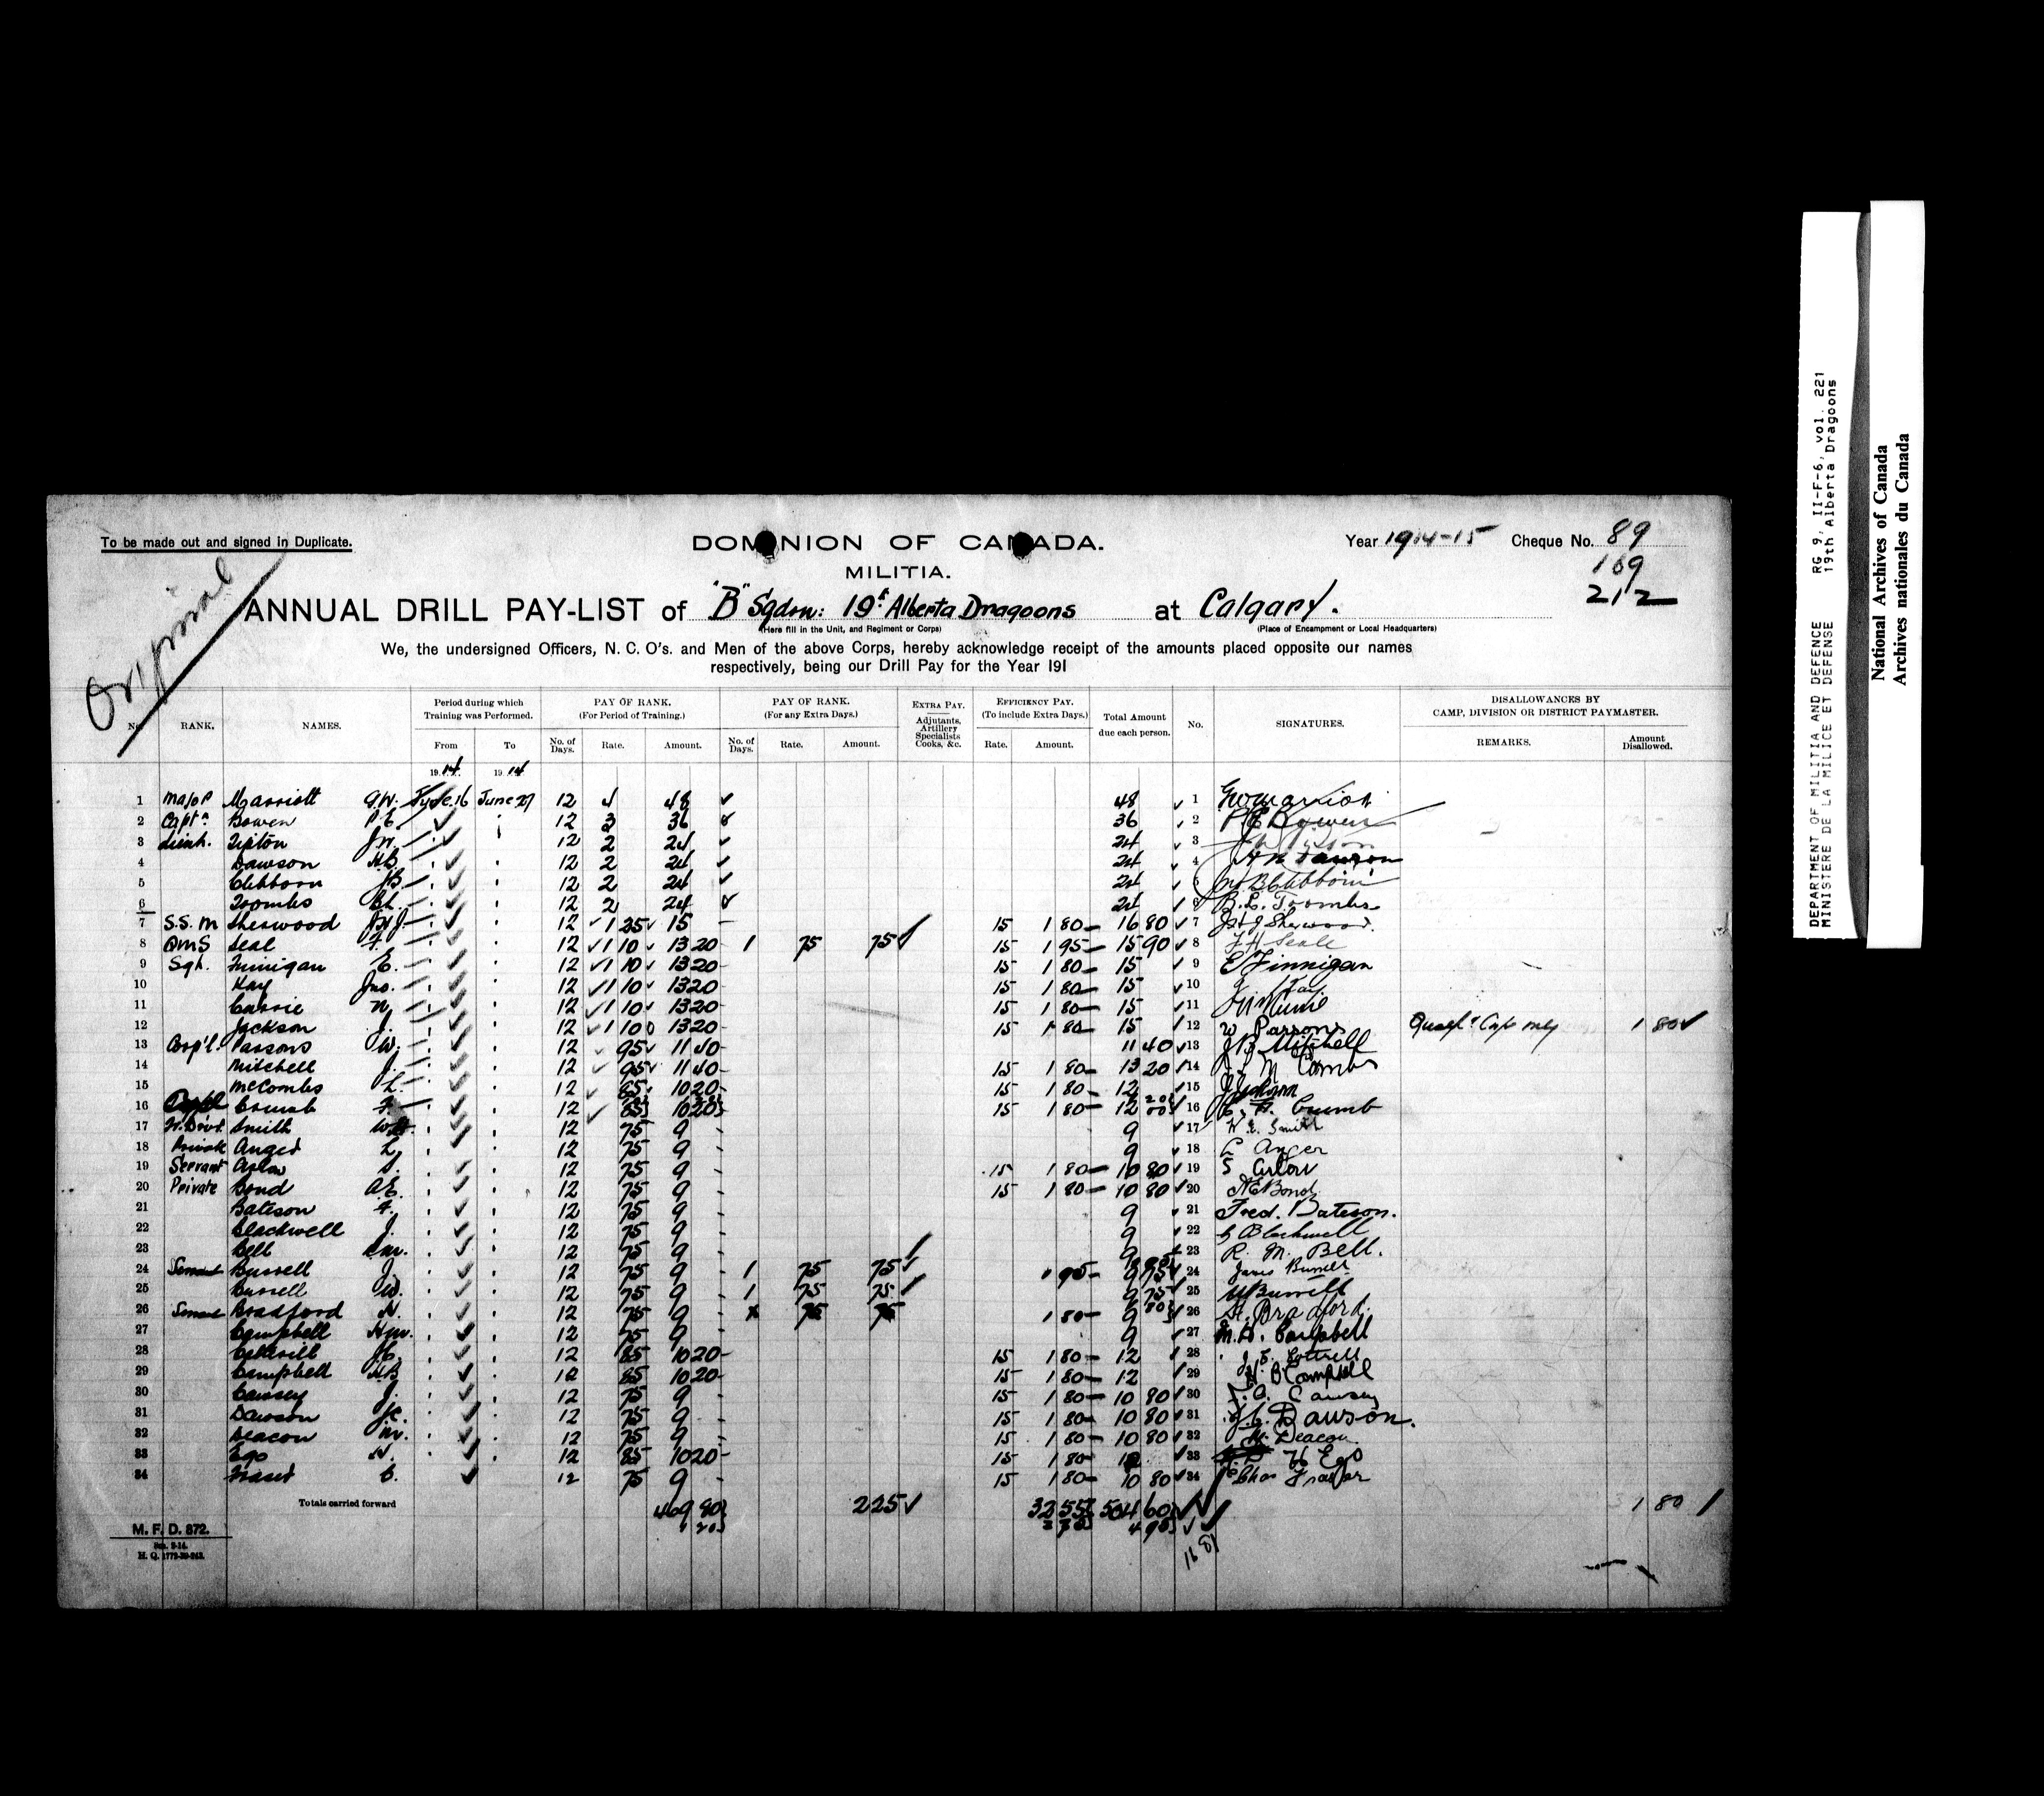 To be made out and signed in Duplicate.
Original
DOMINION OF CANADA.
MILITIA.
Year 1914-15 Cheque No. 89
169
212
ANNUAL DRILL PAY-LIST of "B" Sqdon: 19th Alberta Dragoons at Calgary.
(Here fill in the Unit, and Regiment or Corps) (Place of Encampment or Local Headquarters)
We, the undersigned Officers, N. C. O's. and Men of the above Corps, hereby acknowledge receipt of the amounts placed opposite our names
respectively, being our Drill Pay for the Year 191
No. RANK. NAMES. Period during which Training was Performed. From To PAY OF RANK. (For Period of Training.) No. of Days. Rate. Amount. PAY OF RANK. (For any Extra Days.) No. of Days. Rate. Amount. EXTRA PAY. Adjutants, Artillery Specialists Cooks, &c. EFFICIENCY PAY. (To include Extra Days.) Rate. Amount. Total Amount due each person. No. SIGNATURES. DISALLOWANCES BY CAMP, DIVISION OR DISTRICT PAYMASTER. REMARKS. Amount Disallowed.
19 14 19 14
1 Major Marriott G.W. June 16 June 27 12 4 48 48 1
2 Capt. Bowen P.E. 12 3 36 36 2 P.E. Bowen
3 Lieut. Tipton J.W. 12 2 24 24 3
4 Dawson H.B. 12 2 24 24 4
5 Clibborn J.B. 12 2 24 24 5
6 Toombs B.L. 12 2 24 24 6 B.L. Toombs
7 S.S.M Sherwood 12 1 25 15 15 1 80 16 80 7
8 QMS Seal F. 12 1 10 13 20 1 75 75 15 1 95 15 90 8 F H Seale
9 Sgt. Finnigan E. 12 1 10 13 20 15 1 80 15 9 E Finnigan
10 Kay Jno. 12 1 10 13 20 15 1 80 15 10
11 Currie N. 12 1 10 13 20 15 1 80 15 11
12 Jackson J. 12 1 10 13 20 15 1 80 15 12 W Parsons 1 80
13 Corp'l. Parsons W. 12 95 11 40 11 40 13 J B Mitchell
14 Mitchell J. 12 95 11 40 15 1 80 13 20 14
15 McCombs L. 12 85 10 20 15 1 80 12 15
16 Crumb F. 12 85 10 20 15 1 80 12 00 16 Crumb
17 Smith 12 75 9 9 17 Smith
18 Private Anger L. 12 75 9 9 18 L Anger
19 Servant Arlow S. 12 75 9 15 1 80 10 80 19 S Arlow
20 Private Bond A.E. 12 75 9 15 1 80 10 80 20 A E Bond
21 Bateson F. 12 75 9 9 21 Fred. Bateson.
22 Blackwell J. 12 75 9 9 22 Blackwell
23 Bell 12 75 9 9 23 R. M. Bell.
24 Burrell J. 12 75 9 1 75 75 24
25 Burrell W. 12 75 9 1 75 75 9 75 25 W Burrell
26 Bradford H. 12 75 9 75 75 1 80 9 26 H. Bradford.
27 Campbell 12 75 9 9 27 Campbell
28 Cottrill 12 85 10 20 15 1 80 12 28 Cottrell
29 Campbell H.B. 12 85 10 20 15 1 80 12 29 H B Campbell
30 Causey J. 12 75 9 15 1 80 10 80 30 Causey
31 Dawson J.C. 12 75 9 15 1 80 10 80 31 J.C. Dawson.
32 Deacon 12 75 9 15 1 80 10 80 32 Deacon
33 Ego H. 12 85 10 20 15 1 80 12 33 H Ego
34 Fraser C. 12 75 9 15 1 80 10 80 34 Chas Fraser
Totals carried forward 469 80 2 25 32 55 504 60 1 80
M. F. D. 872.
H. Q. 1772-39-243.
DEPARTMENT OF MILITIA AND DEFENCE RG 9, II-F-6, vol. 221
MINISTERE DE LA MILICE ET DEFENSE 19th Alberta Dragoons
National Archives of Canada
Archives nationales du Canada